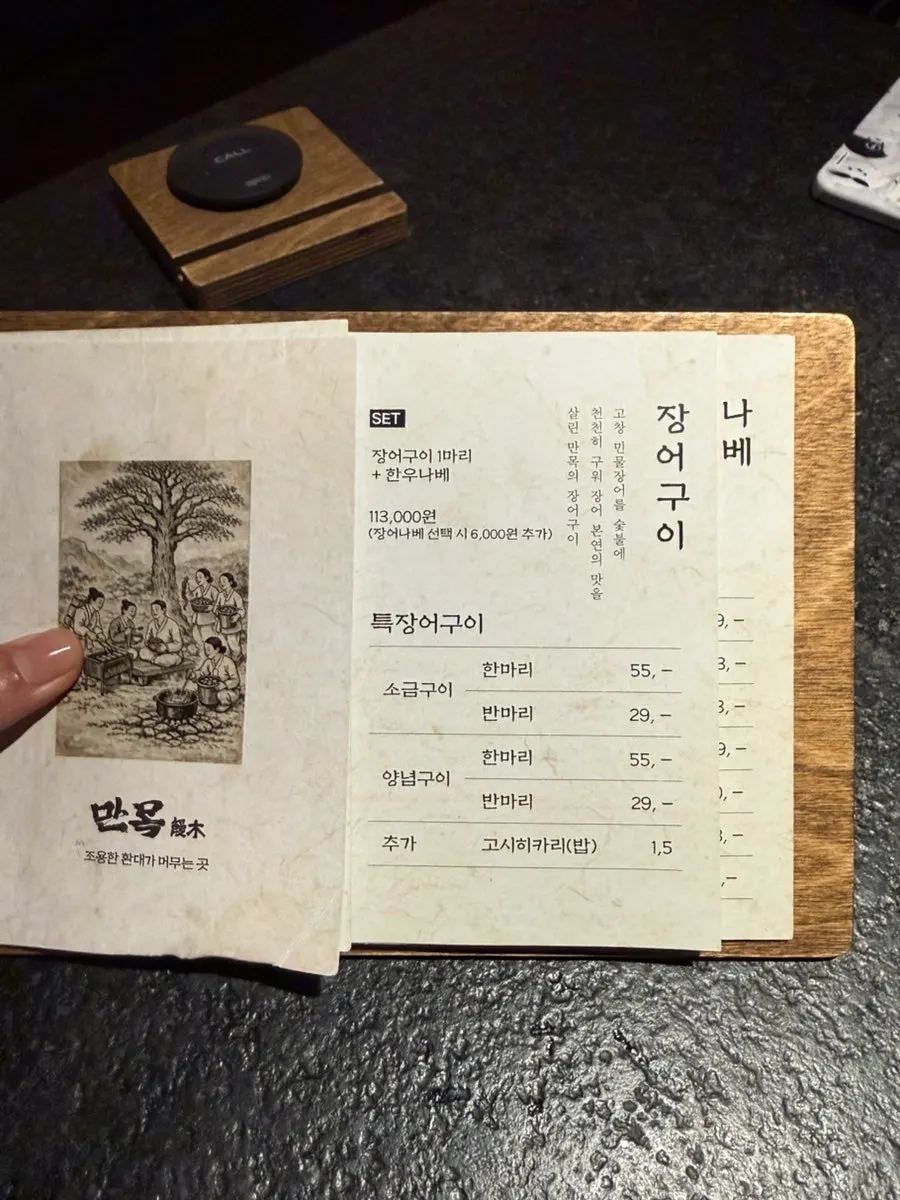 CALL
만목 饅木
조용한 환대가 머무는 곳
SET
장어구이 1마리
+ 한우나베
113,000원
(장어나베 선택 시 6,000원 추가)
장어구이
고창 민물장어를 숯불에
천천히 구워 장어 본연의 맛을
살린 만목의 장어구이
특장어구이
소금구이 한마리 55,–
반마리 29,–
양념구이 한마리 55,–
반마리 29,–
추가 고시히카리(밥) 1,5
나베
9,–
3,–
3,–
9,–